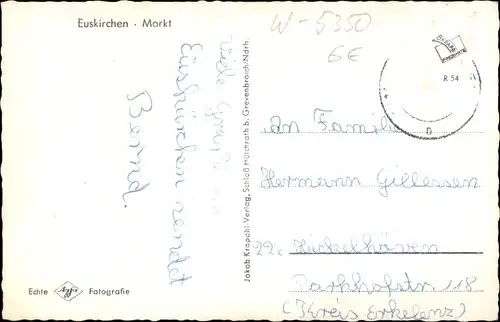 Euskirchen · Markt
W-5350
6€
R 54
Viele Grüße aus
Euskirchen sendet
Bernd.
Jakob Krapohl-Verlag, Schloß Hülchrath b. Grevenbroich/Ndrh.
An Familie
Hermann Gillessen
22c Hückelhoven
Parkhofstr. 118
(Kreis Erkelenz)
Echte Agfa Fotografie